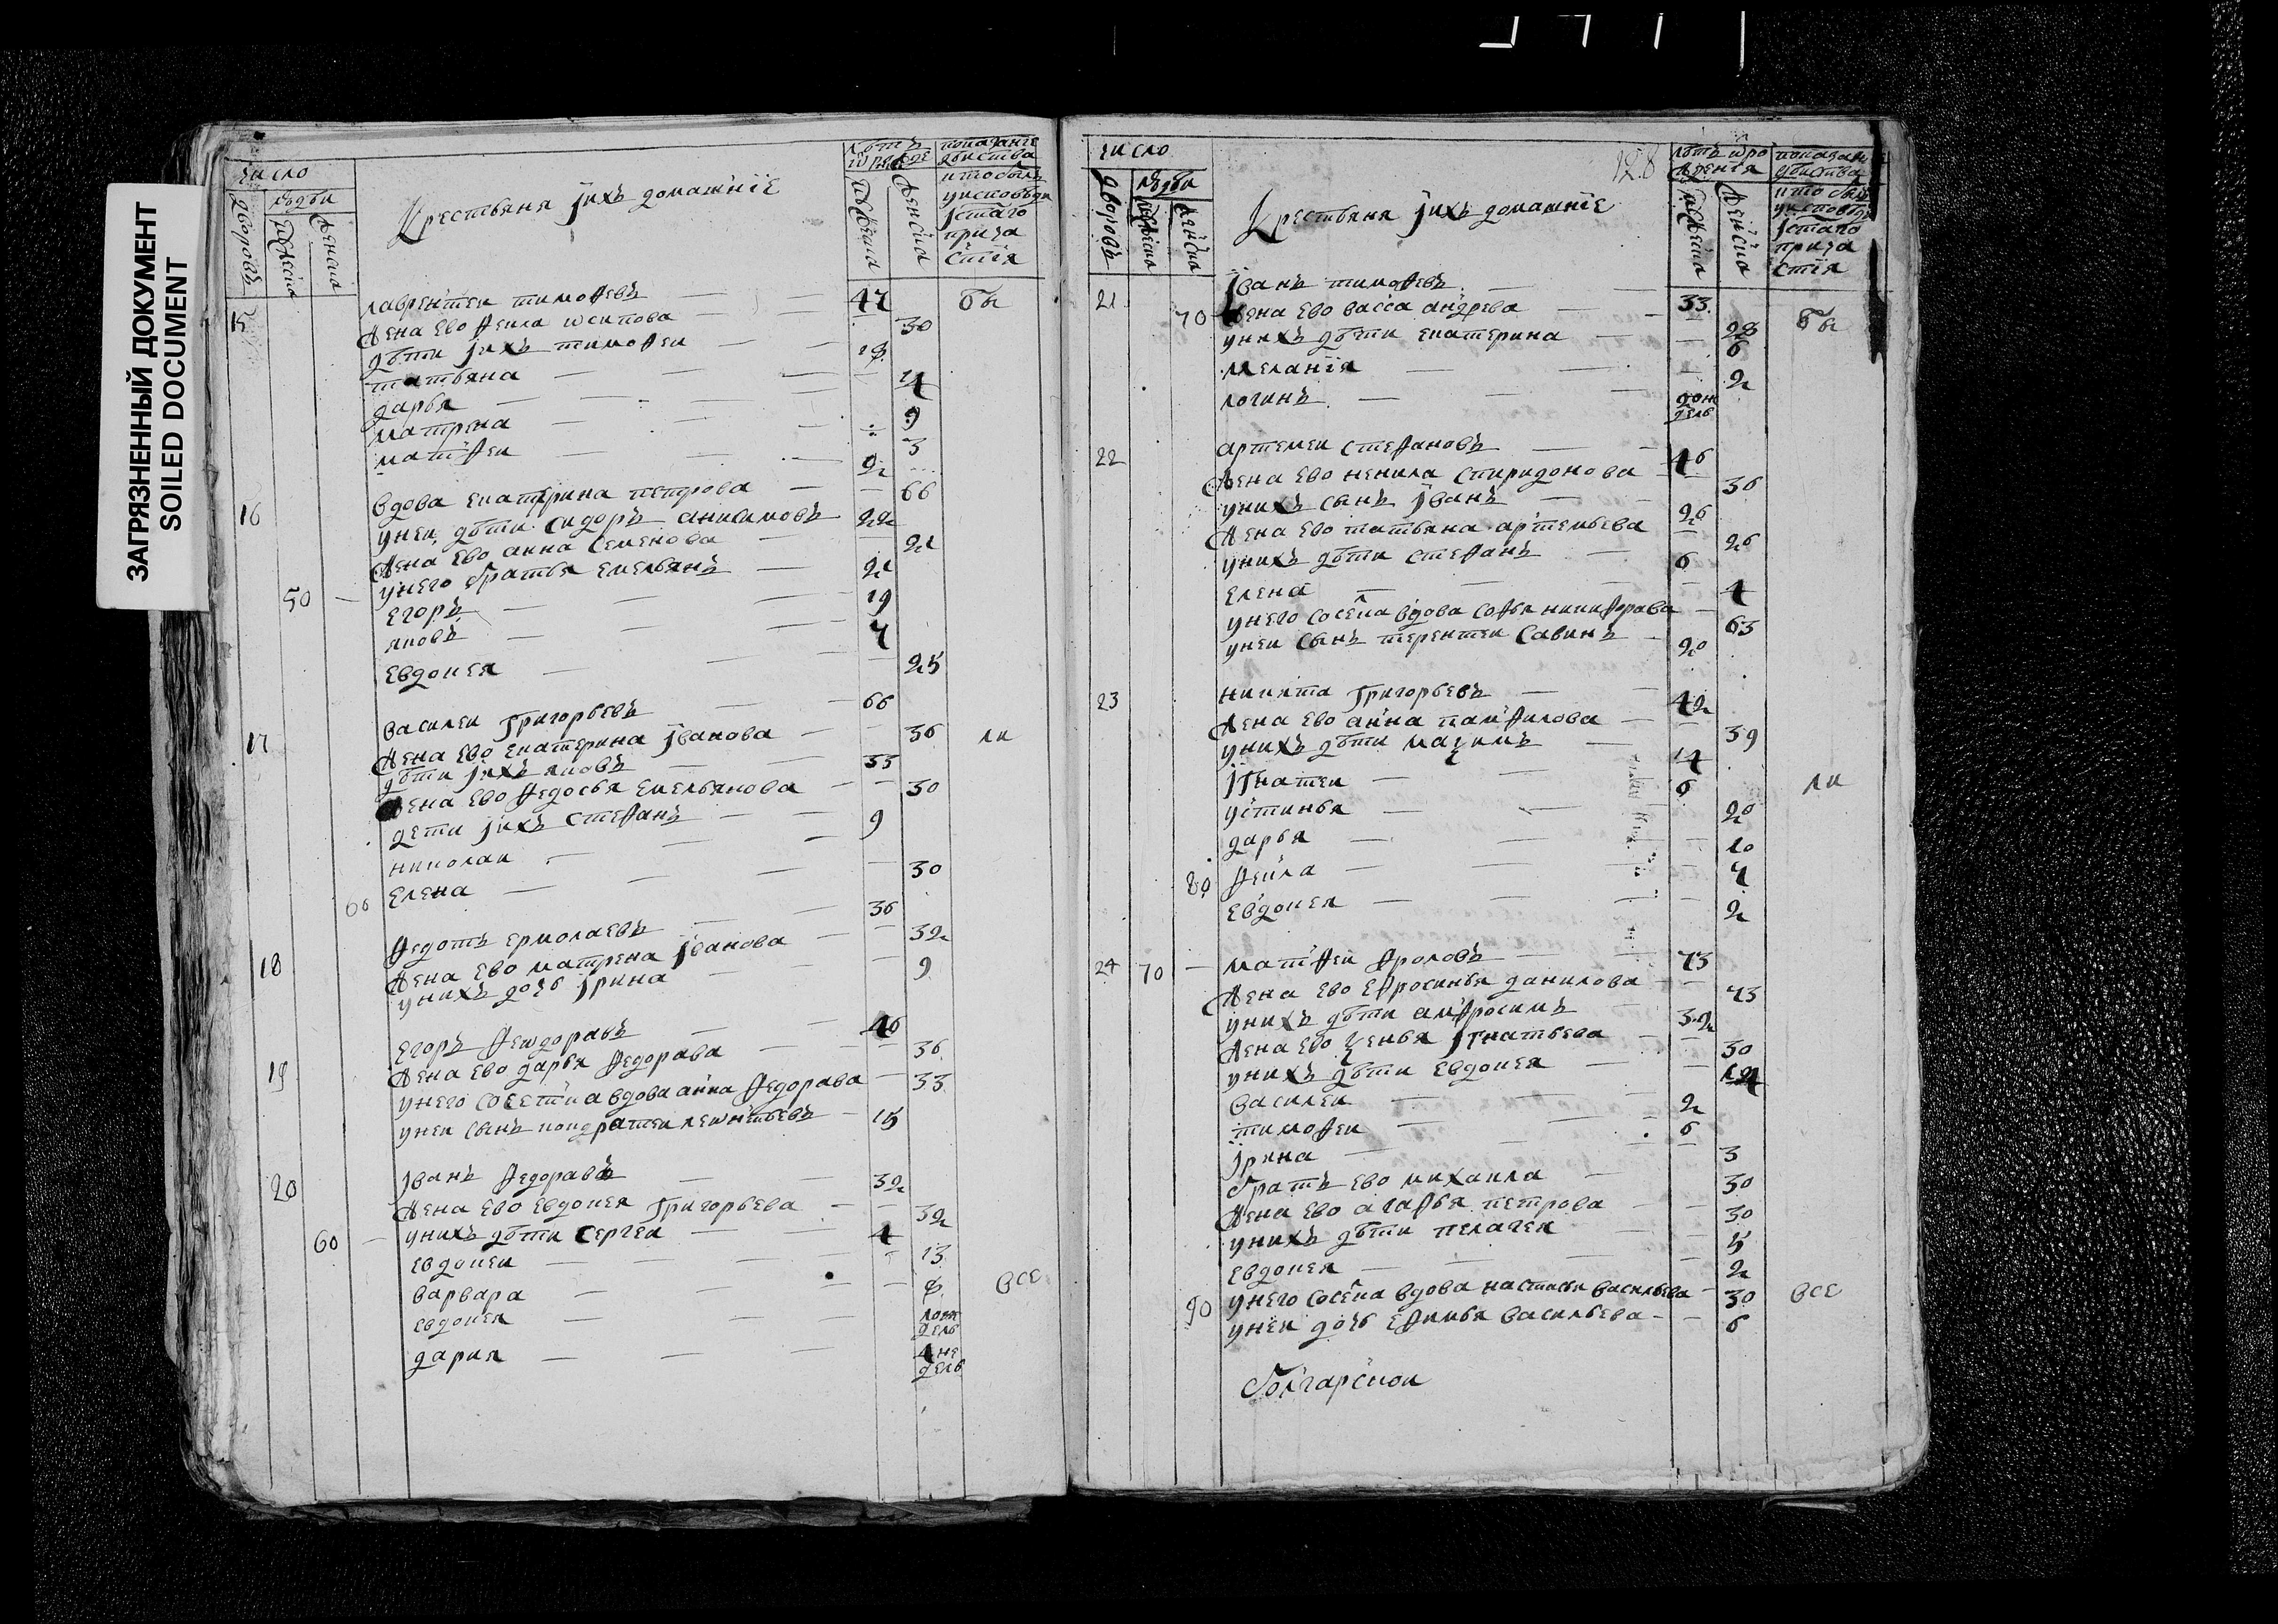 ЗАГРЯЗНЕННЫЙ ДОКУМЕНТ
SOILED DOCUMENT
число
людей
дворовъ
мужеска
женска
Крестьяня ихъ домашніе
мужеска
женска
показаніе
действа
кто былъ
у исповеди
і стаго
прича
стія
15 лаврентеи тимофевъ 47 бы
жена ево фекла исипова 30
дѣти іихъ тимофеи
татьяна
дарья 9
матрена 3
матфеи 2
16 вдова екатерина петрова 66
унеи дѣти сидоръ анисимовъ 22
жена ево анна семенова 21
50 унего братья емельянъ 21
егоръ 19
яковъ
евдокея 25
17 василеи григорьевъ 66
жена ево екатерина іванова 36 ли
дѣти іихъ яковъ 33
жена ево федосья емельянова 30
дети іихъ стефанъ 9
николаи
60 елена 30
18 федотъ ермолаевъ 36
жена ево матрена іванова 32
унихъ дочь ірина 9
19 егоръ феѡдоравъ 46
жена ево дарья федорава 36
унего сосетка вдова анна федорава 33
унеи сынъ кондратеи леѡнтьевъ 15
20 іванъ федоравъ 32
жена ево евдокея григорьева 32
60 унихъ дѣти сергеи 4
евдокеи 13
варвара все
евдокея
дария 4 не
дель
число
людей
дворовъ
мужеска
женска
Крестьяня ихъ домашніе
128
летъ ѡт ро
жденія
мужеска
женска
показан
действа
кто былъ
у исповеди
і стаго
прича
стія
21 іванъ тимофевъ 33 бы
70 жена ево васса андрева 28
унихъ дѣти екатерина 6
меланія 2
логинъ
22 артемеи стефановъ 46
жена ево ненила спиридонова 36
унихъ сынъ іванъ 26
жена ево татьяна артемьева 26
унихъ дѣти стефанъ 6
елена 4
унего сосѣка вдова софья никифорава 63
унеи сынъ терентеи савинъ 20
23 никита григорьевъ 42
жена ево анна памфилова 39
унихъ дѣти маѯимъ 14
ігнатеи 6 ли
устинья 20
дарья 10
80 фекла
евдокея 2
24 70 матфеи фроловъ 73
жена ево ефросинья данилова 73
унихъ дѣти амфросимъ 32
жена ево ѯенья ігнатьева 30
унихъ дѣти евдокея
василеи 2
тимофеи 6
ірина 3
братъ ево михаила 30
жена ево агафья петрова 30
унихъ дѣти пелагея 5
евдокея 2
унего сосѣка вдова настасья васильева 30 все
90 унеи дочь ефимья васильева 6
болгарскои